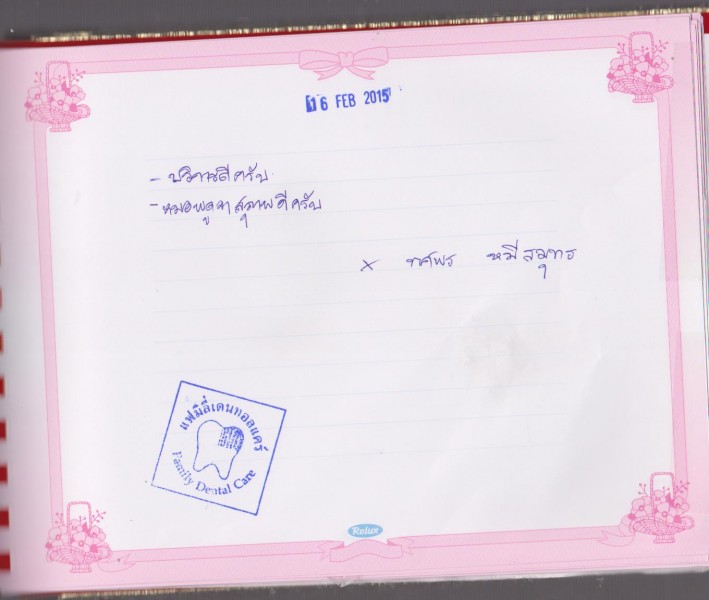 16 FEB 2015
- บริการดีครับ
- หมอพูดจาสุภาพดีครับ
x ทศพร หมีสมุทร
แฟมิลี่เดนทอลแคร์
Family Dental Care
Relux